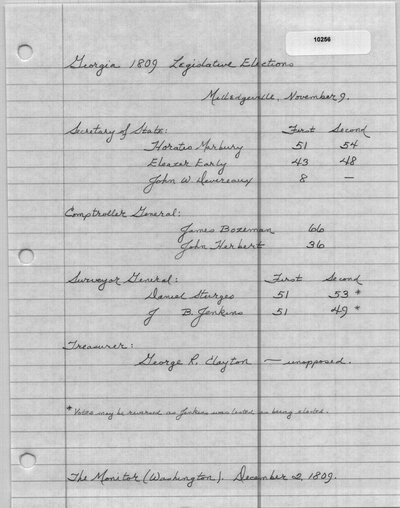 10256
Georgia 1809 Legislative Elections
Milledgeville, November 9.
Secretary of State: First Second
Horatio Marbury 51 54
Eleazer Early 43 48
John W. Devereaux 8 —
Comptroller General:
James Bozeman 66
John Herbert 36
Surveyor General: First Second
Daniel Sturges 51 53 *
J B. Jenkins 51 49 *
Treasurer:
George R. Clayton — unopposed.
* Votes may be reversed as Jenkins was listed as being elected.
The Monitor (Washington). December 2, 1809.